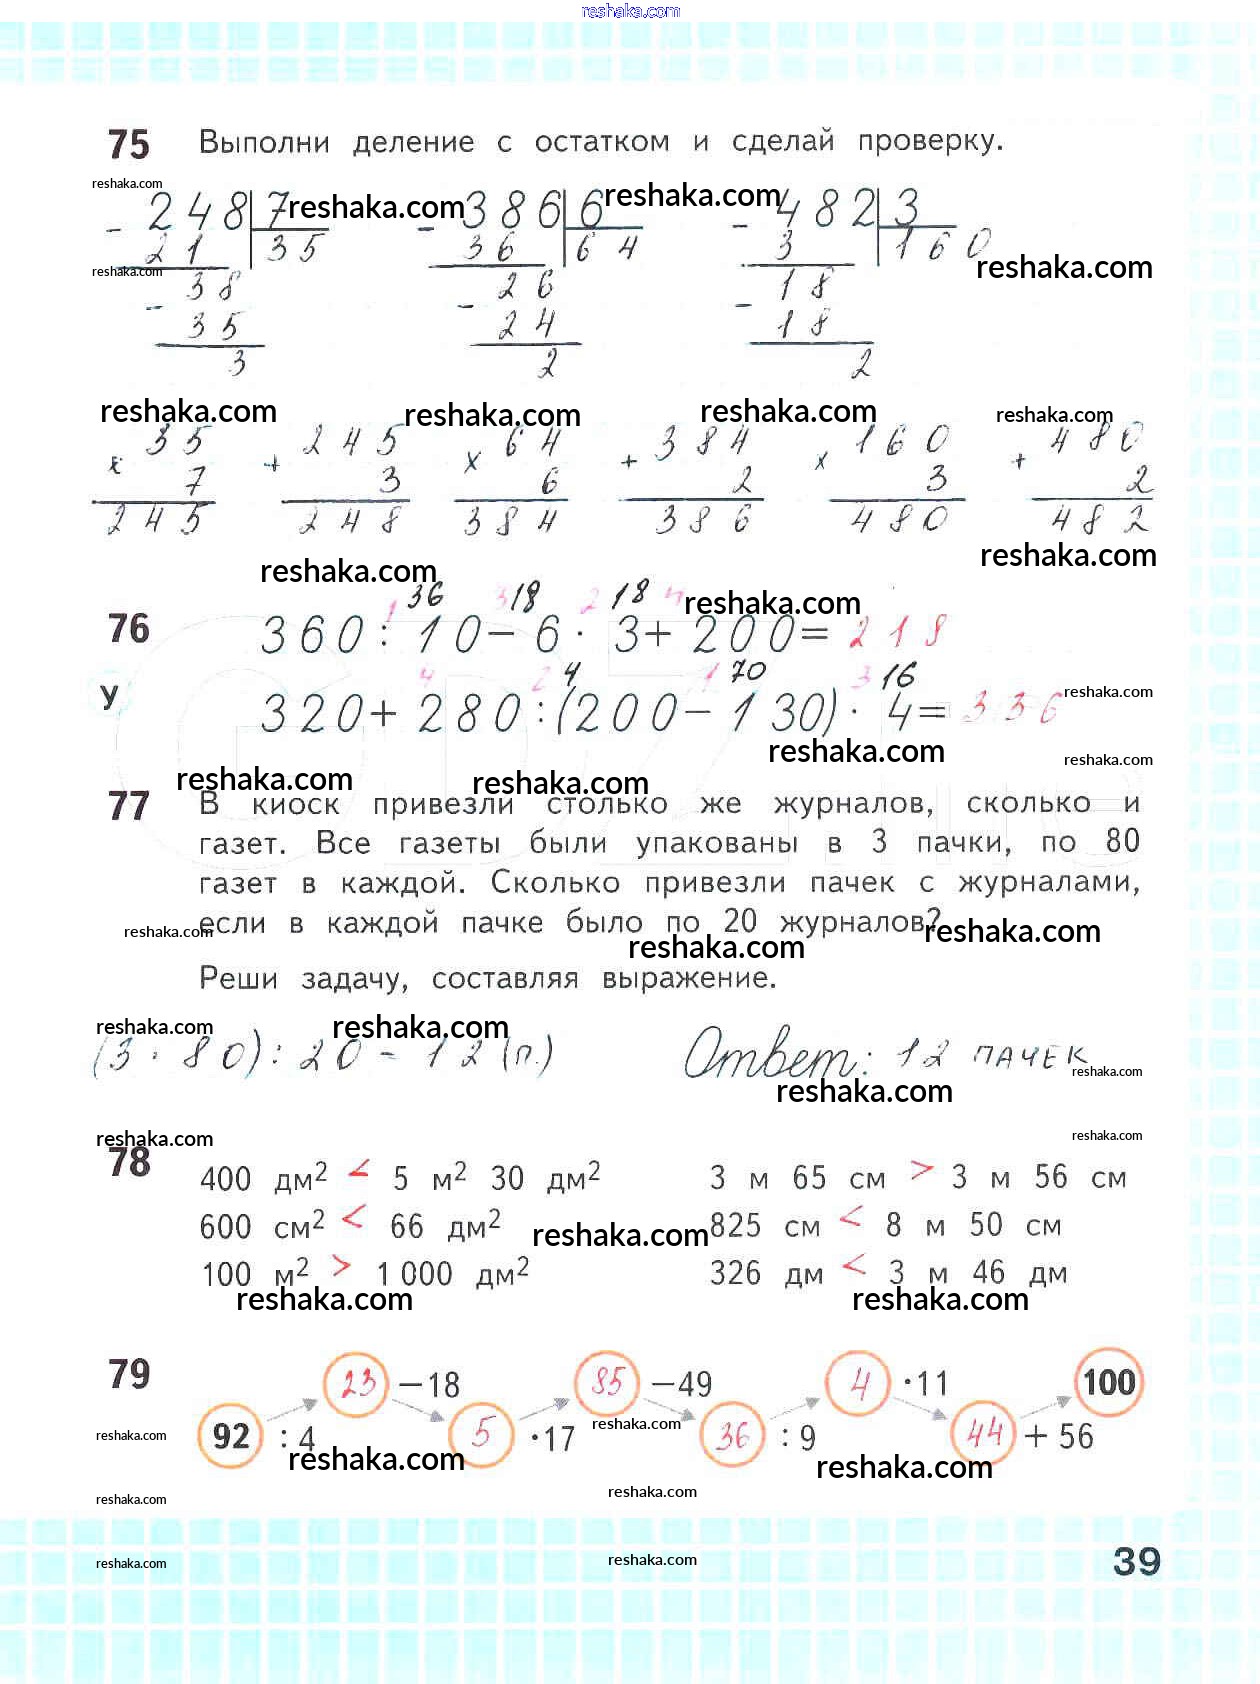 reshaka.com
75 Выполни деление с остатком и сделай проверку.
reshaka.com
- 248 7 reshaka.com - 386 6 reshaka.com - 482 3
21 35 36 64 3 160
reshaka.com reshaka.com
- 38 - 26 - 18
35 24 18
3 2 2
reshaka.com reshaka.com reshaka.com reshaka.com
35 245 64 384 160 480
x 7 + 3 x 6 + 2 x 3 + 2
245 248 384 386 480 482
reshaka.com reshaka.com
1 36 3 18 2 18 4 reshaka.com
76 360 : 10 - 6 · 3 + 200 = 218
4 2 4 1 70 3 16
У 320 + 280 : (200 - 130) · 4 = 336
reshaka.com
reshaka.com reshaka.com
reshaka.com reshaka.com
77 В киоск привезли столько же журналов, сколько и
газет. Все газеты были упакованы в 3 пачки, по 80
газет в каждой. Сколько привезли пачек с журналами,
если в каждой пачке было по 20 журналов?
reshaka.com reshaka.com reshaka.com
Реши задачу, составляя выражение.
reshaka.com reshaka.com
(3 · 80) : 20 = 12 (п.) Ответ: 12 пачек
reshaka.com reshaka.com
reshaka.com reshaka.com
78 400 дм² < 5 м² 30 дм² 3 м 65 см > 3 м 56 см
600 см² < 66 дм² reshaka.com 825 см < 8 м 50 см
100 м² > 1 000 дм² 326 дм < 3 м 46 дм
reshaka.com reshaka.com
79 23 −18 85 −49 4 ·11 100
92 : 4 5 ·17 36 : 9 44 + 56
reshaka.com reshaka.com
reshaka.com reshaka.com
reshaka.com reshaka.com
reshaka.com reshaka.com
39